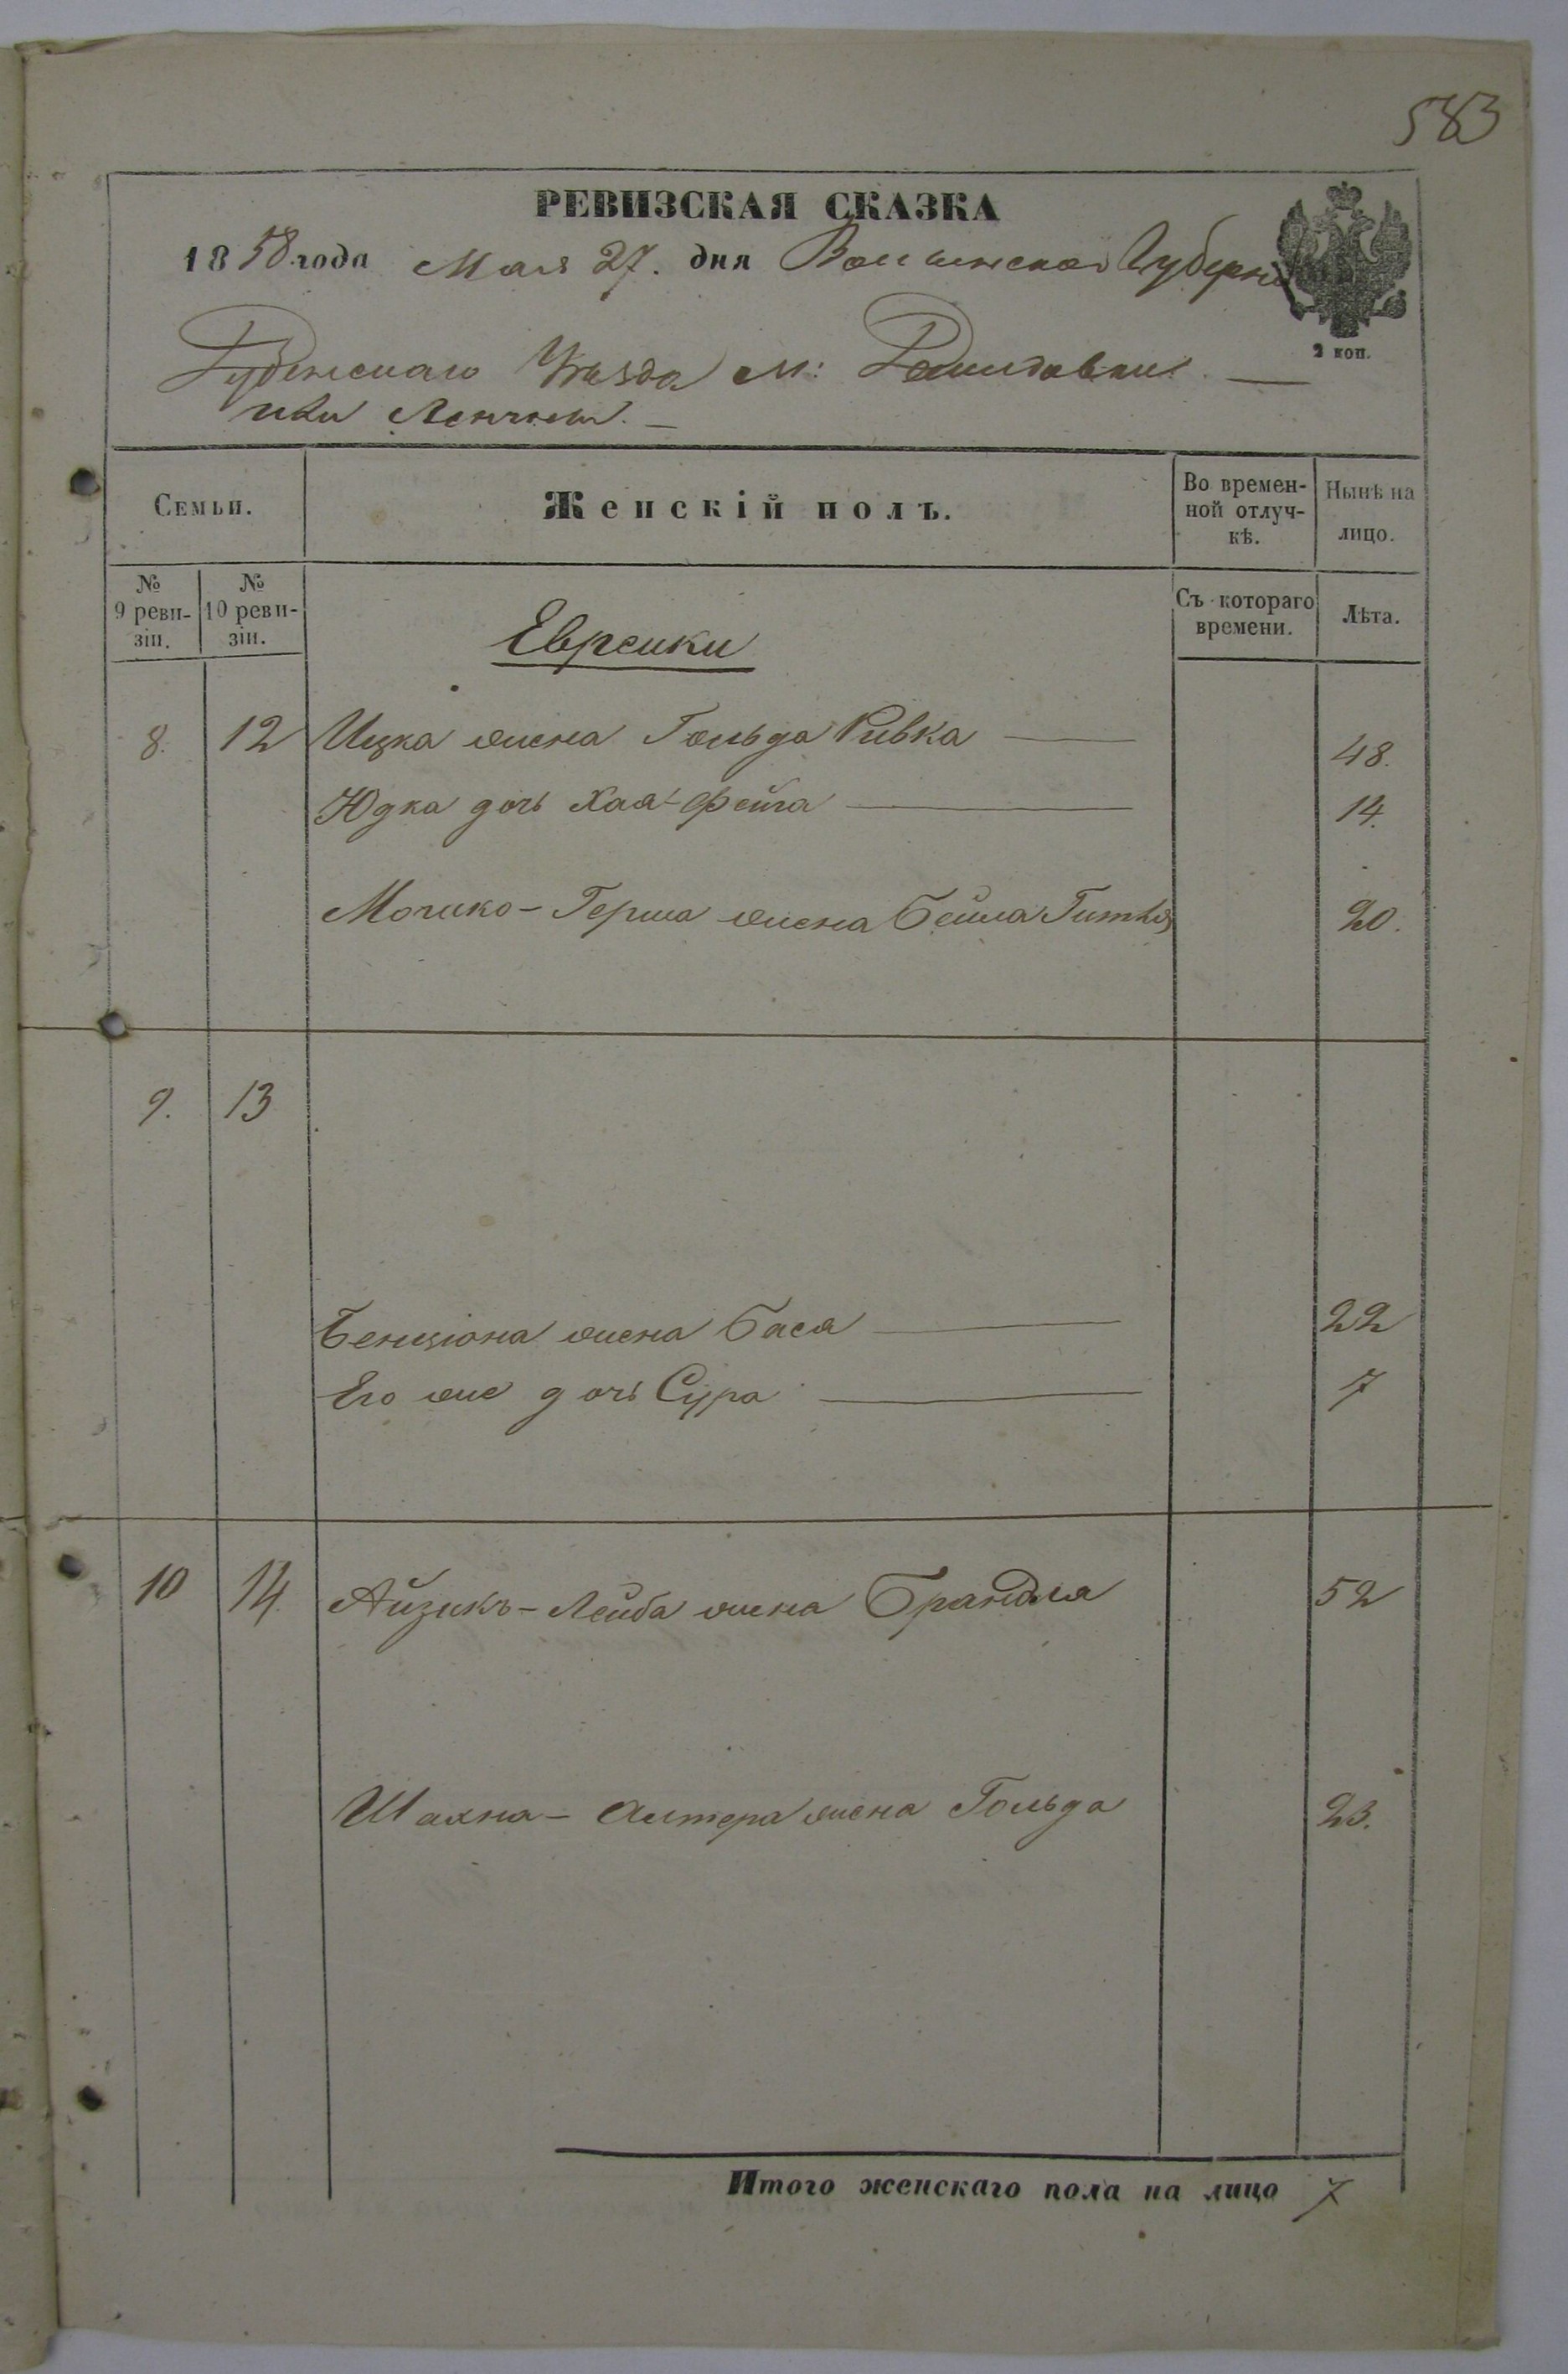 583
РЕВИЗСКАЯ СКАЗКА
1858 года Мая 27. дня Волынской Губерніи
2 коп.
Уѣзда м:
или
Семьи.
Женскій полъ.
Во времен-
ной отлуч-
кѣ.
Нынѣ на
лицо.
№
9 реви-
зіи.
№
10 реви-
зіи.
Съ котораго
времени.
Лѣта.
Евреики
8. 12 Ицка жена Гольда Ривка — 48.
Юдка дочь Хая-Фейга — 14.
Мошко-Герша жена Бейла Гитля 20.
9. 13
Бенціона жена Бася — 22
Его же дочь Сура — 7
10 14 Айзикъ-Лейба жена Брандля 52
Шахна-Алтера жена Гольда 23.
Итого женскаго пола на лицо 7